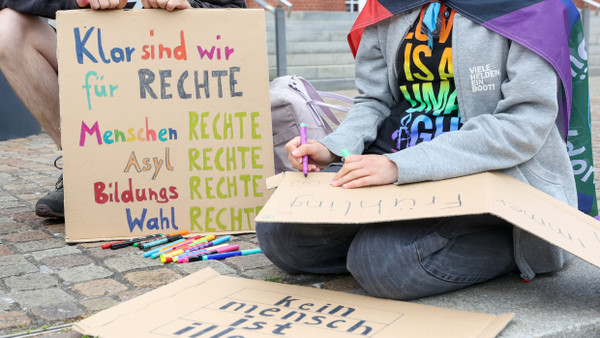 Klar sind wir
für RECHTE
Menschen RECHTE
Asyl RECHTE
Bildungs RECHTE
Wahl RECHTE
VIELE
HELDEN
EIN
BOOT!
IS A
Frühling
Immer
Kein
mensch
ist